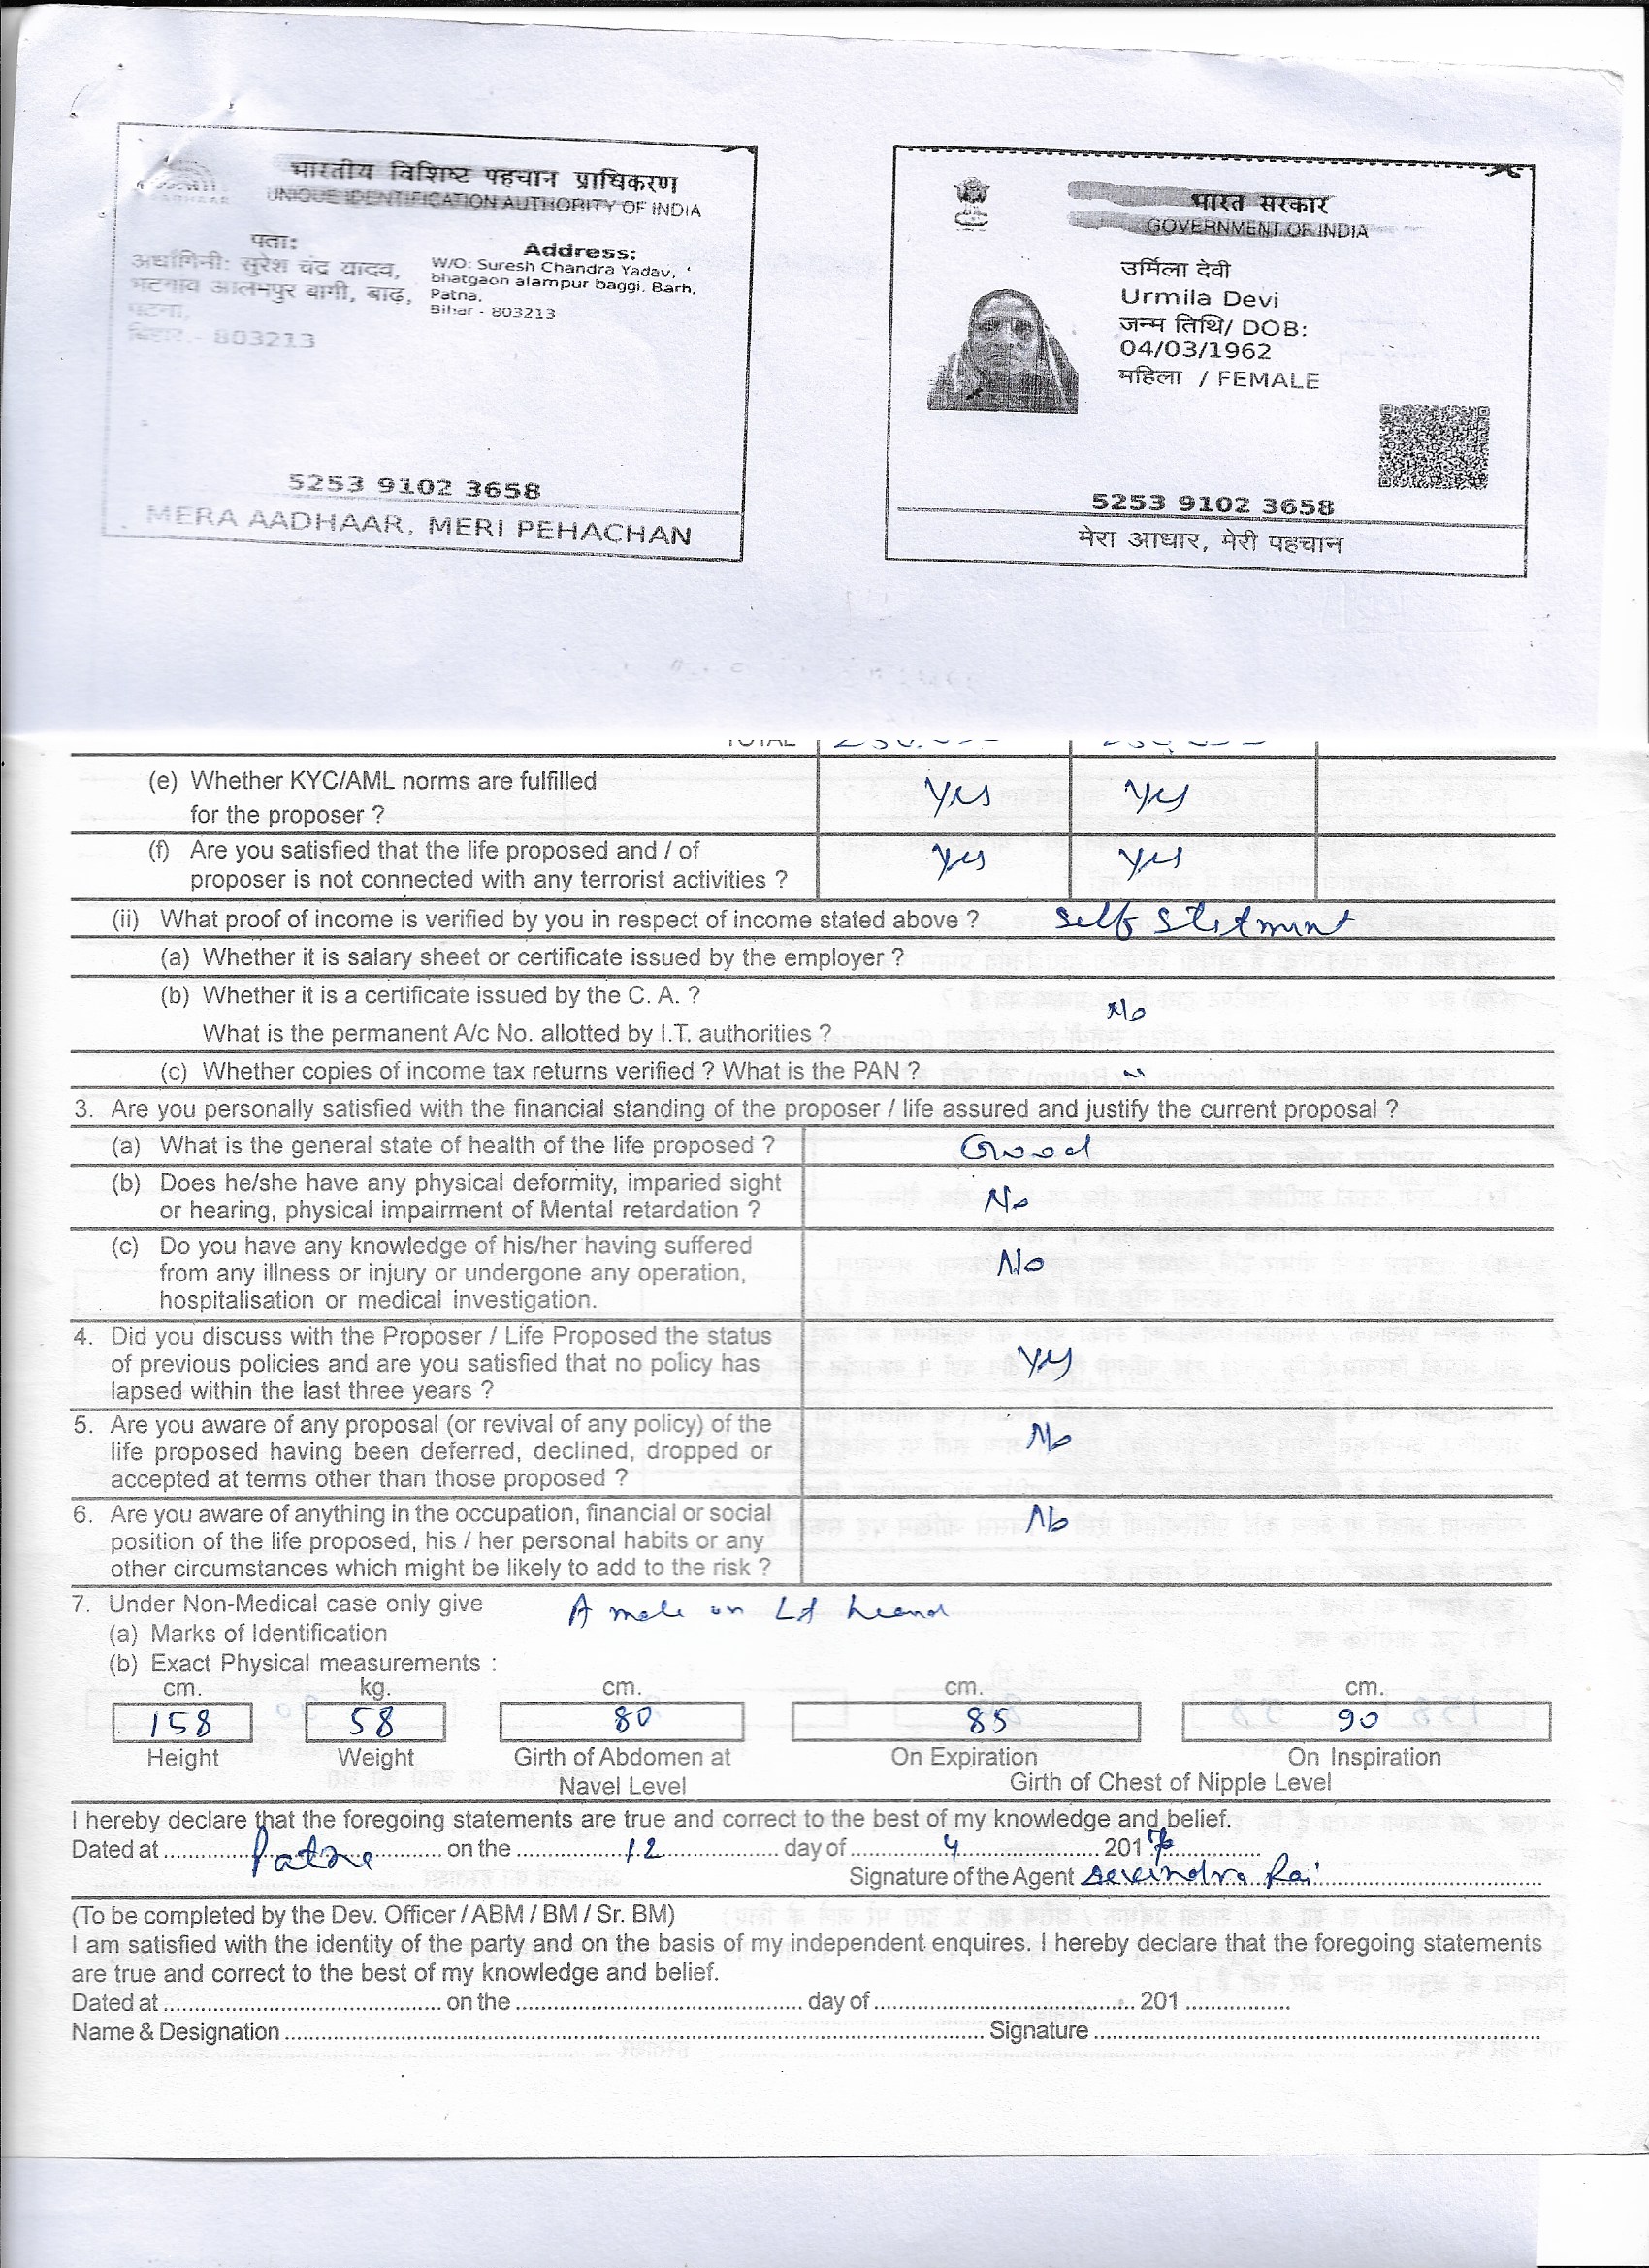 भारतीय विशिष्ट पहचान प्राधिकरण
UNIQUE IDENTIFICATION AUTHORITY OF INDIA
पता:
अर्धांगिनी: सुरेश चंद्र यादव,
भटगांव आलमपुर बागी, बाढ़,
पटना,
बिहार - 803213
Address:
W/O: Suresh Chandra Yadav,
bhatgaon alampur baggi, Barh,
Patna,
Bihar - 803213
5253 9102 3658
MERA AADHAAR, MERI PEHACHAN
भारत सरकार
GOVERNMENT OF INDIA
उर्मिला देवी
Urmila Devi
जन्म तिथि/ DOB:
04/03/1962
महिला / FEMALE
5253 9102 3658
मेरा आधार, मेरी पहचान
TOTAL
(e) Whether KYC/AML norms are fulfilled
for the proposer ? Yes Yes
(f) Are you satisfied that the life proposed and / of
proposer is not connected with any terrorist activities ? Yes Yes
(ii) What proof of income is verified by you in respect of income stated above ? Self Stetment
(a) Whether it is salary sheet or certificate issued by the employer ?
(b) Whether it is a certificate issued by the C. A. ?
No
What is the permanent A/c No. allotted by I.T. authorities ?
(c) Whether copies of income tax returns verified ? What is the PAN ? "
3. Are you personally satisfied with the financial standing of the proposer / life assured and justify the current proposal ?
(a) What is the general state of health of the life proposed ? Good
(b) Does he/she have any physical deformity, imparied sight
or hearing, physical impairment of Mental retardation ? No
(c) Do you have any knowledge of his/her having suffered
from any illness or injury or undergone any operation, No
hospitalisation or medical investigation.
4. Did you discuss with the Proposer / Life Proposed the status
of previous policies and are you satisfied that no policy has Yes
lapsed within the last three years ?
5. Are you aware of any proposal (or revival of any policy) of the
life proposed having been deferred, declined, dropped or No
accepted at terms other than those proposed ?
6. Are you aware of anything in the occupation, financial or social No
position of the life proposed, his / her personal habits or any
other circumstances which might be likely to add to the risk ?
7. Under Non-Medical case only give A mole on Lt heand
(a) Marks of Identification
(b) Exact Physical measurements :
cm. kg. cm. cm. cm.
158 58 80 85 90
Height Weight Girth of Abdomen at On Expiration On Inspiration
Navel Level Girth of Chest of Nipple Level
I hereby declare that the foregoing statements are true and correct to the best of my knowledge and belief.
Dated at Patna on the 12 day of 4 2017
Signature of the Agent Devendra Rai
(To be completed by the Dev. Officer / ABM / BM / Sr. BM)
I am satisfied with the identity of the party and on the basis of my independent enquires. I hereby declare that the foregoing statements
are true and correct to the best of my knowledge and belief.
Dated at ........ on the ........ day of ........ 201 ........
Name & Designation ........ Signature ........